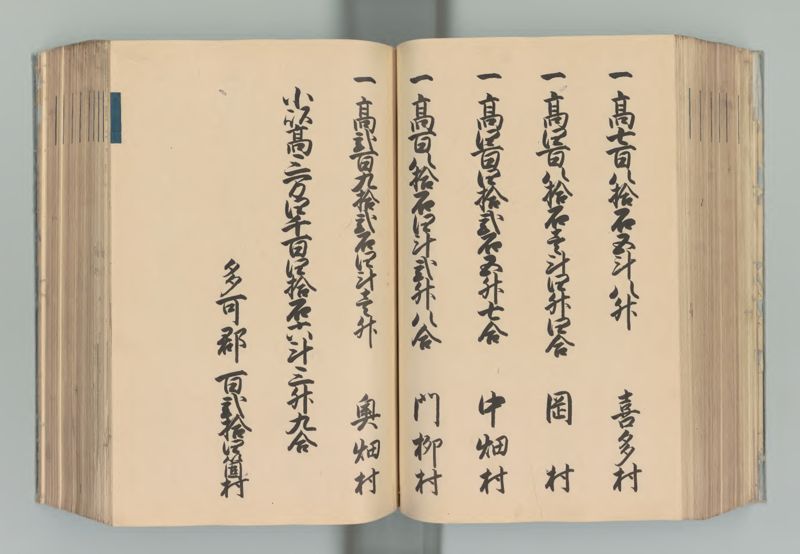 一高七百八拾石五斗八升 喜多村
一高四百八拾石壱斗四升四合 岡村
一高四百四拾弐石五升七合 中畑村
一高百八拾石四斗弐升八合 門柳村
一高弐百九拾弐石四斗壱升 奥畑村
小以高三万四千百四拾石六斗三升九合
多可郡 百弐拾四箇村